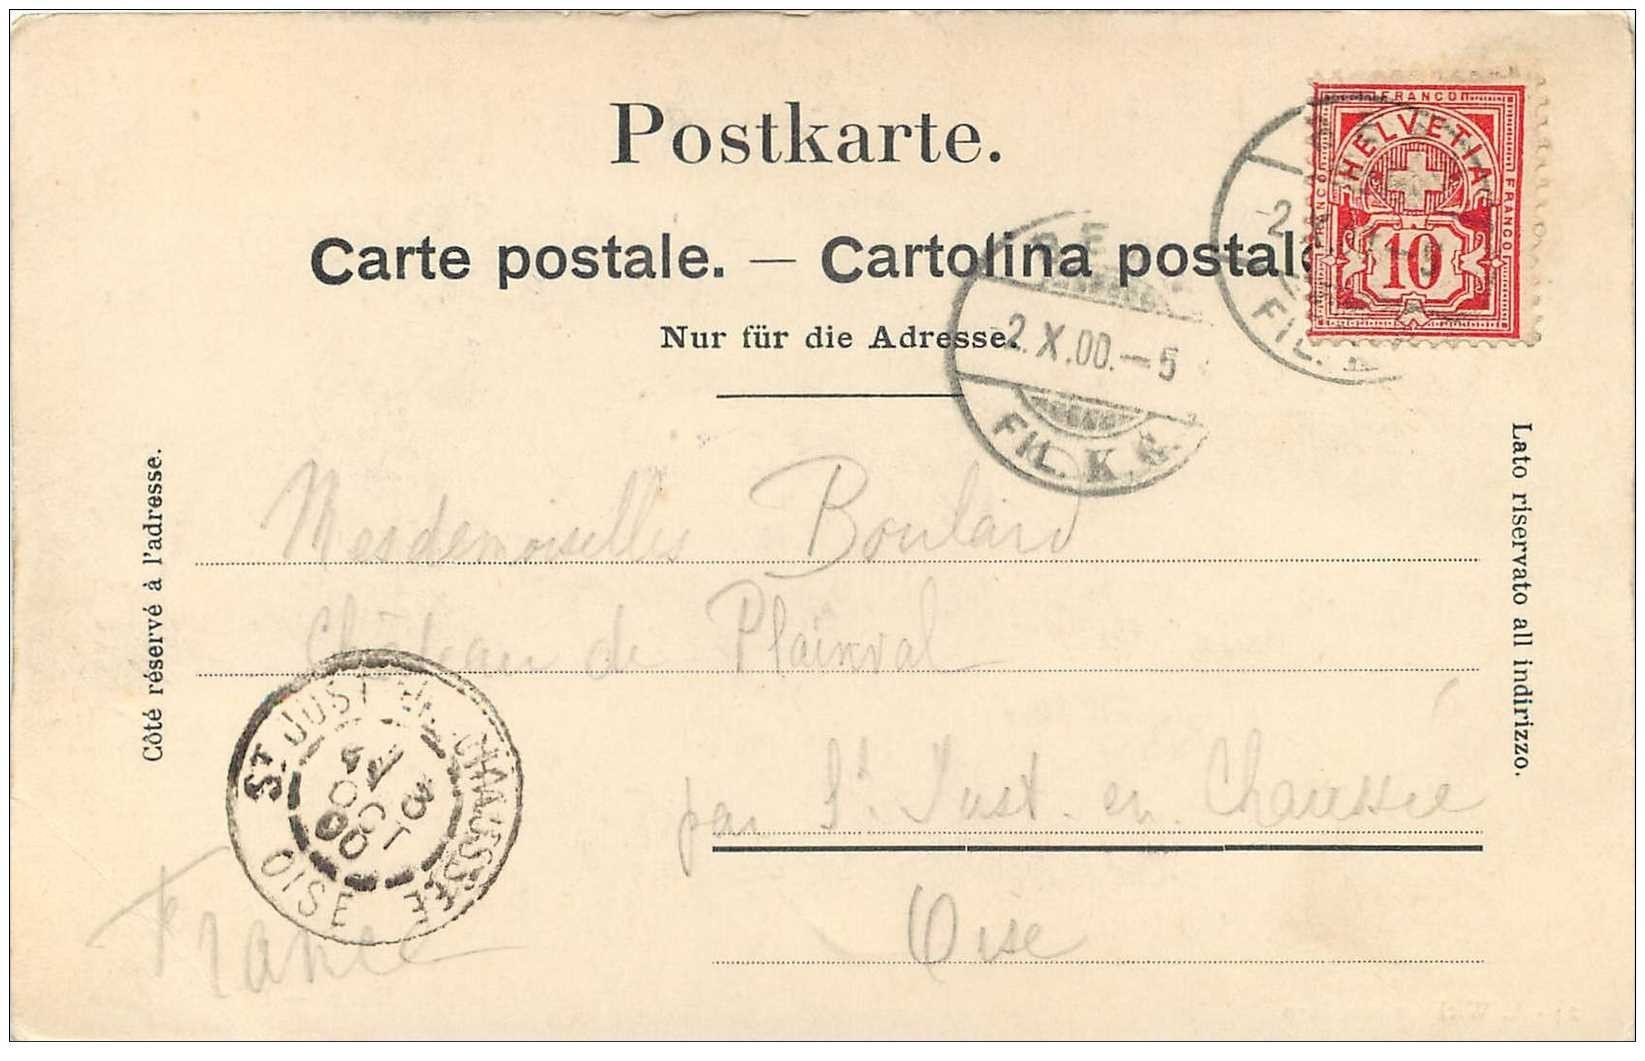 Postkarte.
Carte postale. — Cartolina postale
Nur für die Adresse.
FRANCO
FRANCO
HELVETIA
10
2.X.00.—5
FIL. K.G.
-5
FIL.
Côté réservé à l'adresse.
Lato riservato all indirizzo.
Mesdemoiselles Boulard
Château de Plainval
par St. Just en Chaussée
Oise
France
ST JUST EN CHAUSSÉE
3
OCT
00
OISE